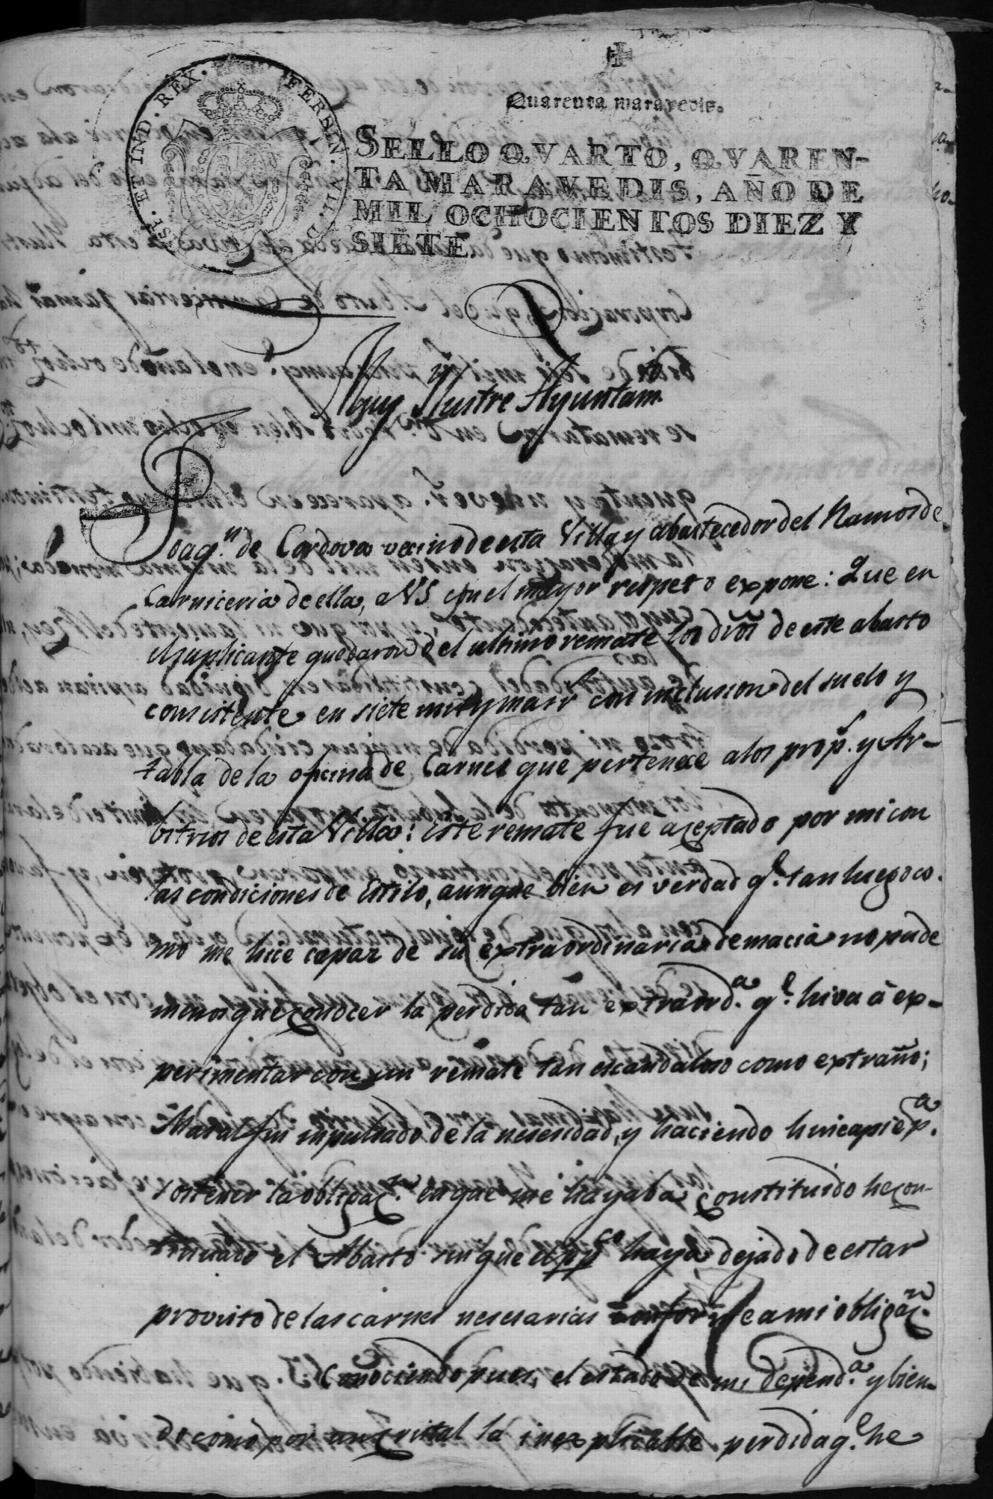 Quarenta maravedis.
FERDIN. VII. D. G. HISP. ET IND. REX.
SELLO QVARTO, QVAREN-
TA MARAVEDIS, AÑO DE
MIL OCHOCIENTOS DIEZ Y
SIETE
Muy Ylustre Ayuntam.
Joaq.n de Cordova vecino de esta Villa y abastecedor del Ramo de
Carniceria de ella, a VS con el mayor respeto expone: Que en
el suplicante quedaron del ultimo remate los dros de este abasto
consistente en siete mil y mas r.s con inclusion del suelo y
tabla de la oficina de Carnes que pertenece a los prop.s y Ar-
bitrios de esta Villa: este remate fue aceptado por mi con
las condiciones de estilo, aunque bien es verdad q.e tan luego co-
mo me hice capaz de su extraordinaria demacia no pude
menos que conocer la perdida tan extraord.a q.e hiva á ex-
perimentar con un remate tan escandaloso como extraño;
Mas al fin inpulsado de la necesidad, y haciendo hincapie p.a
sostener la obligac.n en que me hayaba constituido he con-
tinuado el Abasto sin que el pp.co haya dejado de estar
provisto de las carnes necesarias conforme a mi obligaz.n
Conociendo pues, el estado de mi depend.a y bien-
do como por un cristal la inexplicable perdida q.e he